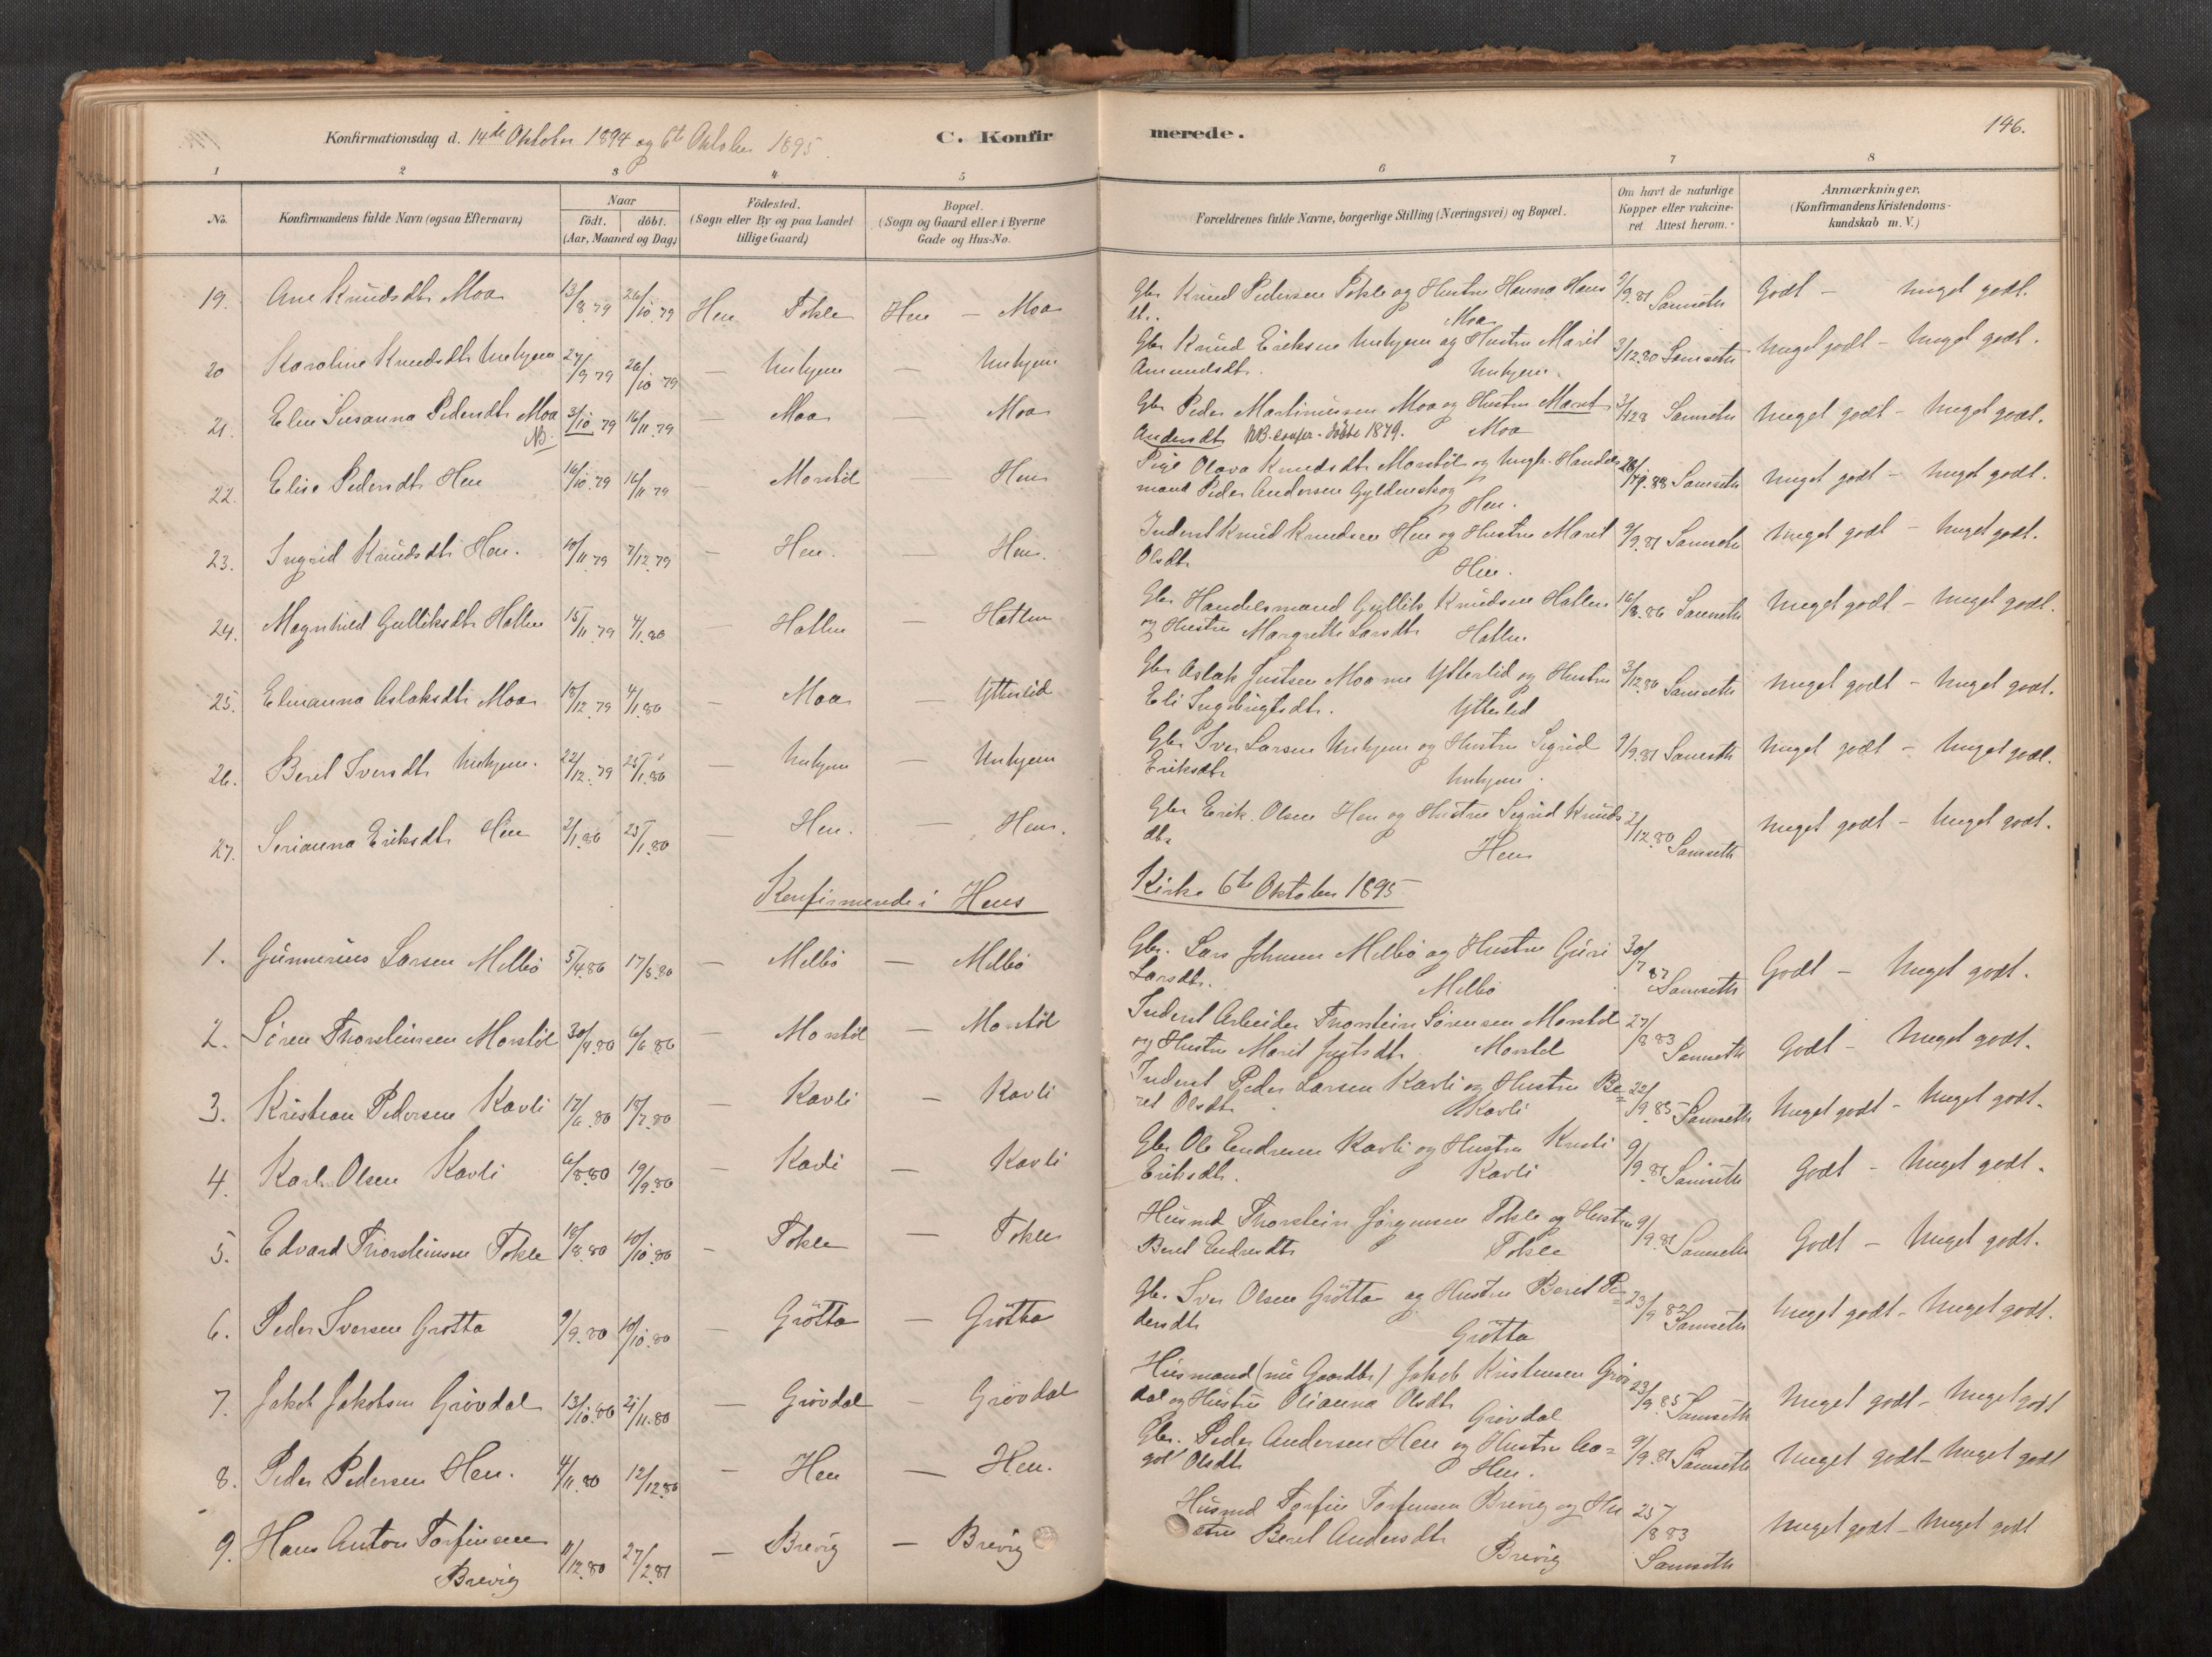 Konfirmationsdag d. 14de Oktober 1894 og 6te Oktober 1895.
C. Konfirmerede.
146.
1 2 3 4 5 6 7 8
No.
Konfirmandens fulde Navn (ogsaa Efternavn)
Naar
födt. döbt.
(Aar, Maaned og Dag)
Födested.
(Sogn eller By og paa Landet
tillige Gaard)
Bopæl.
(Sogn og Gaard eller i Byerne
Gade og Hus-No.
Forældrenes fulde Navne, borgerlige Stilling (Næringsvei) og Bopæl.
Om havt de naturlige
Kopper eller vakcine-
ret Attest herom.
Anmærkninger.
(Konfirmandens Kristendoms-
kundskab m. V.)
19. Ane Knudsdtr Moa 13/8 79 26/10 79 Hen Tokle Hen — Moa Gbr Knud Pedersen Tokle og Hustru Hanna Hans 9/9.81 Samseth Godt — Meget godt.
dtr. Moa
20 Karoline Knudsdtr Unhjem 27/9 79 26/10 79 — Unhjem — Unhjem Gbr Knud Eriksen Unhjem og Hustru Marit 3/12.80 Samseth Meget godt — Meget godt.
Amundsdtr. Unhjem.
21. Elen Susanna Pedersdtr Moa 3/10 79 16/11 79 — Moa — Moa Gbr Peder Martinussen Moa og Hustru Marit Samseth Meget godt — Meget godt.
NB. Andersdtr NB. confer. döbte 1879. Moa
22. Elise Pedersdtr Hen 16/10.79 16/11 79 — Morstöl — Hen Pige Olava Knudsdtr Morstöl og Ungk. Handels 88 Samseth Meget godt — Meget godt.
mand Peder Andersen Gyldenskog Hen.
23. Ingrid Knudsdtr Hen. 10/11 79 7/12.79 — Hen. — Hen. Inderst Knud Knudsen Hen og Hustru Marit 9/9.81 Samseth Meget godt — Meget godt.
Olsdtr Hen.
24. Magnhild Gulliksdtr Hatlen 15/11.79 4/1.80 — Hatlen — Hatlen Gbr Handelsmand Gullik Knudsen Hatlen 16/8.86 Samseth Meget godt — Meget godt.
og Hustru Margrethe Larsdtr Hatlen
25. Elmanna Aslaksdtr Moa 18/12.79 4/1.80 — Moa — Ytterlid Gbr Aslak Justsen Moa nu Ytterlid og Hustru 3/12.80 Samseth Meget godt — Meget godt.
Eli Ingebrigtsdtr. Ytterlid
26. Beret Iversdtr Unhjem. 22/12.79 25/1.80 — Unhjem — Unhjem Gbr Iver Larsen Unhjem og Hustru Sigrid 9/9.81 Samseth Meget godt — Meget godt.
Eriksdtr Unhjem.
27. Serianna Eriksdtr Hen 2/1.80 25/1.80 — Hen. — Hen. Gbr Erik Olsen Hen og Hustru Sigrid Knuds 2/12.80 Samseth Meget godt — Meget godt.
dtr Hen
Konfirmerede i Hens Kirke 6te Oktober 1895
1. Gunnerius Larsen Melbö 5/4.80 17/5.80 — Melbö — Melbö Gbr. Lars Johnsen Melbö og Hustru Guri 30/7 87 Samseth Godt — Meget godt.
Larsdtr. Melbö
2. Sören Thorsteinsen Morstöl 30/4.80 6/6 80 — Morstöl — Morstöl Inderst Arbeider Thorstein Sörensen Morstöl 27/8 83 Samseth Godt — Meget godt.
og Hustru Marit Justsdtr. Morstöl
3. Kristian Pedersen Kavli 17/6.80 18/7.80 — Kavli — Kavli Inderst Peder Larsen Kavli og Hustru Be= 22/9 85 Samseth Meget godt — Meget godt.
ret Olsdtr Kavli
4. Karl Olsen Kavli 6/8.80 19/9.80 — Kavli — Kavli Gbr Ole Endresen Kavli og Hustru Kristi 9/9.81 Samseth Godt — Meget godt.
Eriksdtr. Kavli
5. Edvard Thorsteinsen Tokle 18/8.80 10/10.80 — Tokle — Tokle Husmd Thorstein Jörgensen Tokle og Hustru 9/9.81 Samseth Godt — Meget godt.
Beret Endresdtr Tokle
6. Peder Iversen Grötta 9/9.80 10/10.80 — Grötta — Grötta Gbr. Iver Olsen Grötta og Hustru Beret Pe= 23/9 82 Samseth Meget godt — Meget godt.
dersdtr Grötta
7. Jakob Jakobsen Grövdal 13/10.80 21/11.80 — Grövdal — Grövdal Husmand (nu Gaardbr) Jakob Kristensen Gröv 23/9.85 Samseth Meget godt — Meget godt
dal og Hustru Olianna Olsdtr Grövdal
8. Peder Pedersen Hen. 4/11.80 12/12.80 — Hen — Hen. Gbr. Peder Andersen Hen og Hustru Aa= 9/9.81 Samseth Meget godt — Meget godt
got Olsdtr Hen.
9. Hans Anton Torfinsen 11/12.80 27/2.81 — Brevig — Brevig Husmd Torfin Torfinsen Brevig og Hu 25/8 83 Meget godt — Meget godt
Brevig stru Beret Andersdtr Brevig Samseth